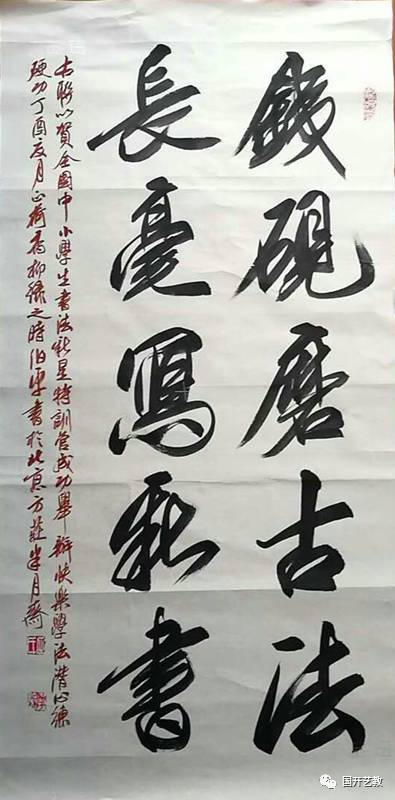 鐵硯磨古法
長毫寫新書
书聯以贺全國中小學生书法新星特訓營成功舉辦快樂學法潛心練
硬功丁酉夏月正荷香柳綠之時書於北京方莊半月齋
国开艺教